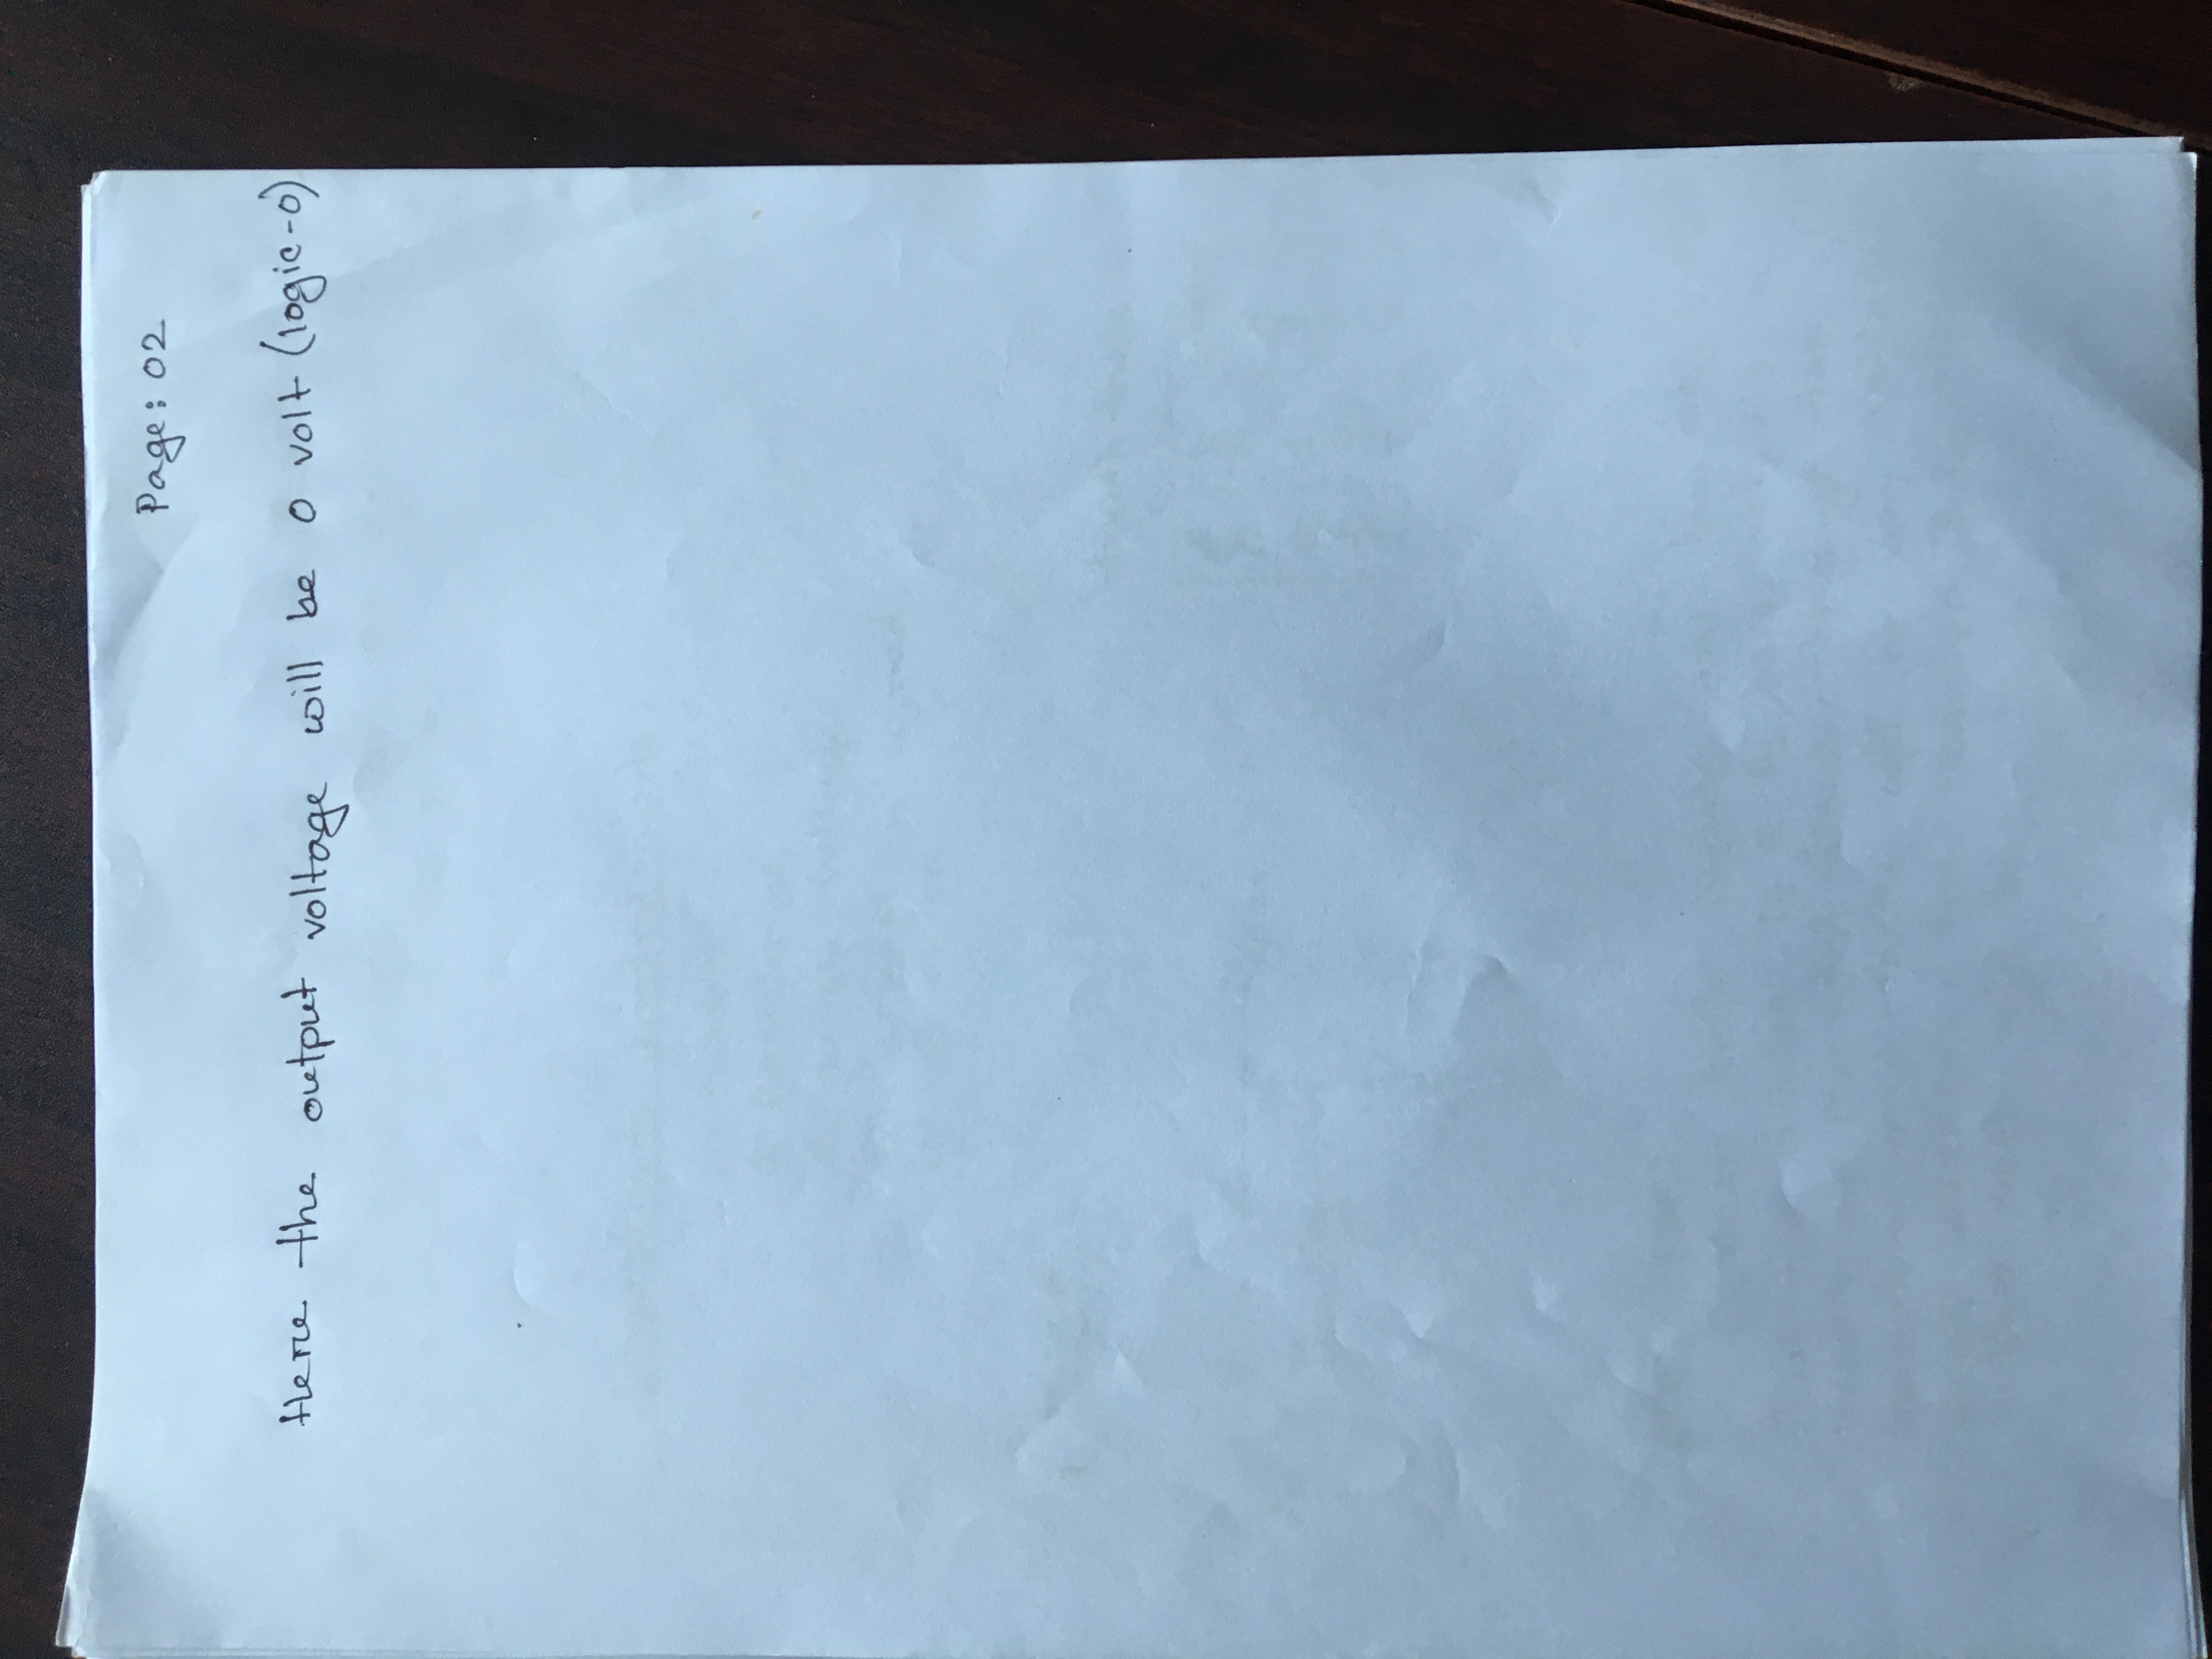 Page: 02
Here the output voltage will be 0 volt (logic-0)